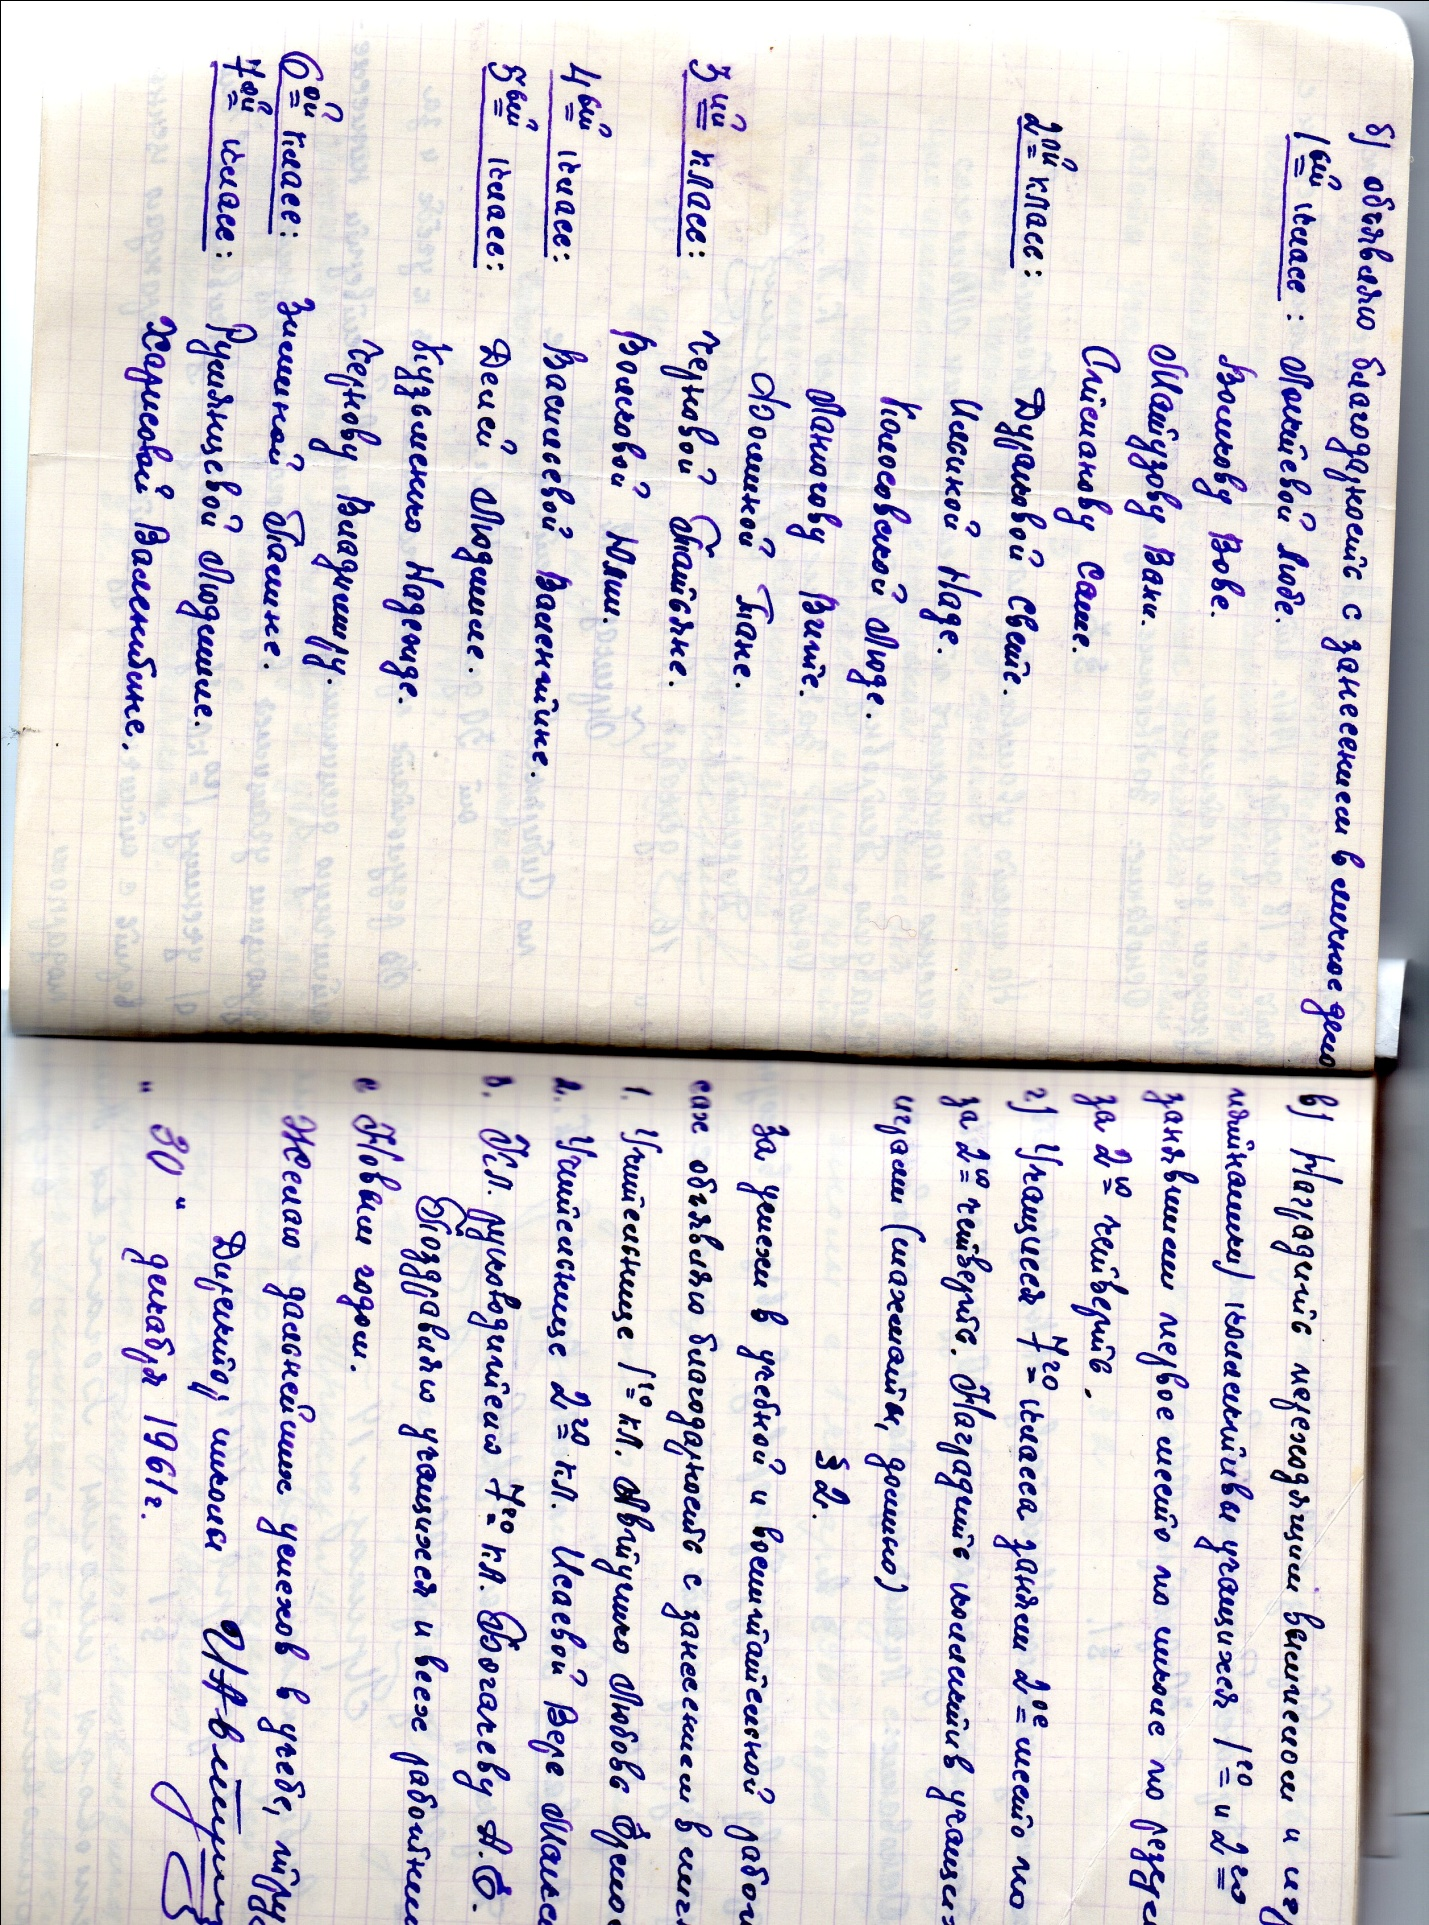 б) объявляю благодарность с занесением в личное дело
1ый класс: Локтевой Любе.
Волкову Вове.
Майзову Вани.
Стисланову Саше.
2ой класс: Дураковой Свете.
Илсиной Наде.
Колосовской Люде.
Паногову Вите.
Фоминой Тане.
3ий класс: Черновой Татьяне.
Волковой Юлии.
4ый класс: Васильевой Валентине.
5ый класс: Делей Людмиле.
Кузьменко Надежде.
Чернову Владимиру.
6ой класс: Зиминой Галине.
7ой класс: Румянцевой Людмиле.
Харисовой Валентине.
в) Наградить переходящим вымпелом и игр
(настольными) коллективы учащихся 1го и 2го
занявшими первое место по школе по резул
за 2ю четверть.
г) Учащиеся 7го класса заняли 2ое место по
за 2ю четверть. Наградить коллектив учащих
играми (шахматы, домино)
§ 2.
За успехи в учебной и воспитательной работ
сах объявляю благодарность с занесением в личн
1. Учительнице 1го кл. Автушко Любовь Ермо
2. Учительнице 2го кл. Исаевой Вере Макси
3. Кл. руководителю 7го кл. Богачеву А.Е.
Поздравляю учащихся и всех работник
с Новым годом.
Желаю дальнейших успехов в учебе, труд
Директор школы
"30" декабря 1961г.